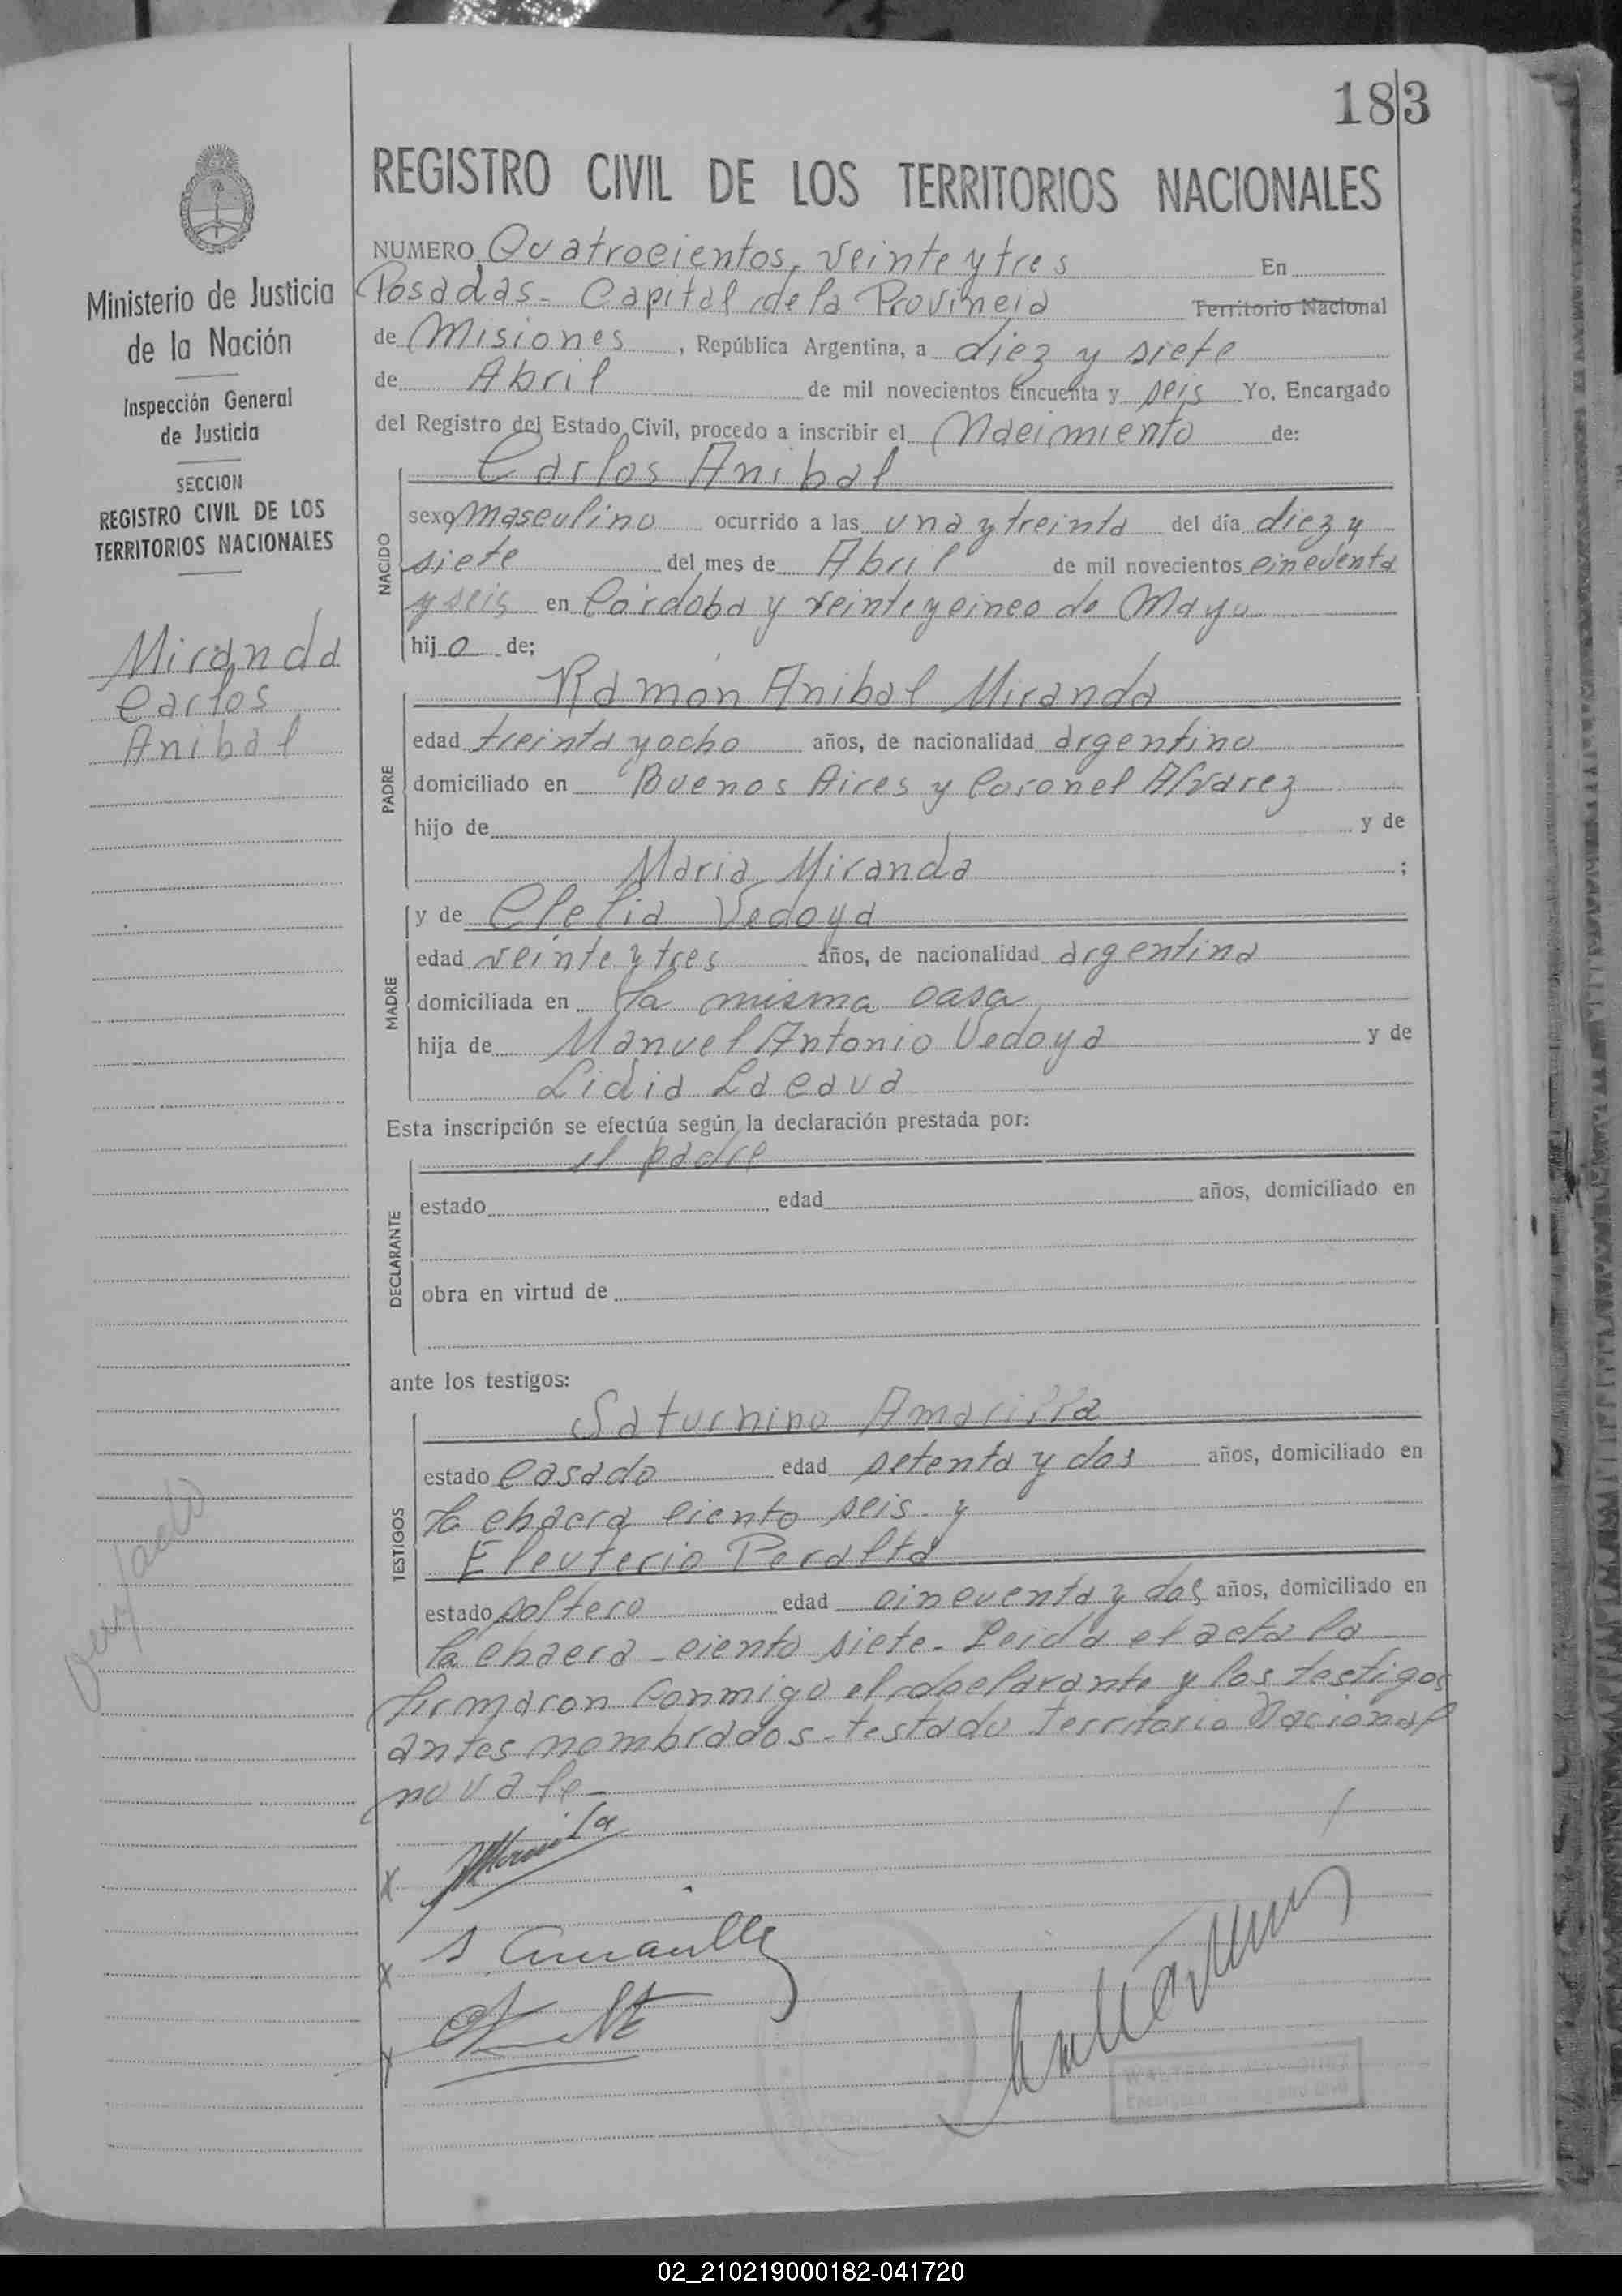 183
REGISTRO CIVIL DE LOS TERRITORIOS NACIONALES
Ministerio de Justicia
de la Nación
Inspección General
de Justicia
SECCION
REGISTRO CIVIL DE LOS
TERRITORIOS NACIONALES
Miranda
Carlos
Anibal
NUMERO Quatrocientos, veinte y tres En
Posadas - Capital de la Provincia Territorio Nacional
de Misiones, República Argentina, a diez y siete
de Abril de mil novecientos cincuenta y seis Yo, Encargado
del Registro del Estado Civil, procedo a inscribir el Nacimiento de:
Carlos Anibal
NACIDO
sexo masculino ocurrido a las una y treinta del día diez y
siete del mes de Abril de mil novecientos cincuenta
y seis en Córdoba y veinte y cinco de Mayo
hijo de;
Ramón Anibal Miranda
PADRE
edad treinta y ocho años, de nacionalidad argentino
domiciliado en Buenos Aires y Coronel Alvarez
hijo de y de
Maria Miranda ;
MADRE
y de Clelia Vedoya
edad veinte y tres años, de nacionalidad argentina
domiciliada en la misma casa
hija de Manuel Antonio Vedoya y de
Lidia Lacava
Esta inscripción se efectúa según la declaración prestada por:
el padre
DECLARANTE
estado edad años, domiciliado en
obra en virtud de
ante los testigos:
Saturnino Amarilla
TESTIGOS
estado casado edad setenta y dos años, domiciliado en
la chacra ciento seis - y
Eleuterio Peralta
estado soltero edad cincuenta y dos años, domiciliado en
la chacra - ciento siete - Leida el acta la
firmaron conmigo el declarante y los testigos
antes nombrados - testado Territorio Nacional
no vale -
X
X S Amarilla
X
02_210219000182-041720